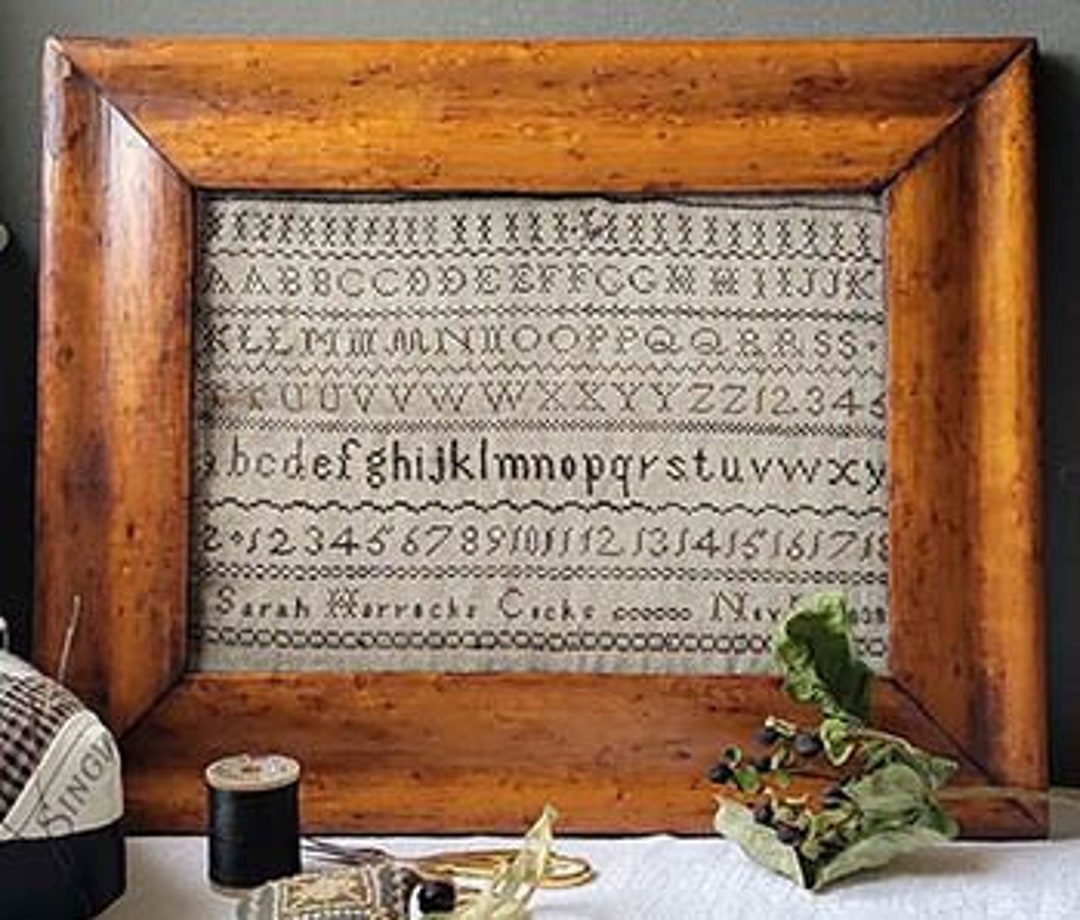 A A B B C C D D E E F F G G H H I I J J K
K L L M M M N N O O P P Q Q R R S S
T U U V V W W X X Y Y Z Z 1 2 3 4 5
a b c d e f g h i j k l m n o p q r s t u v w x y
2 1 2 3 4 5 6 7 8 9 10 11 12 13 14 15 16 17 18
Sarah Horrocks Cocks Nov
SINGER